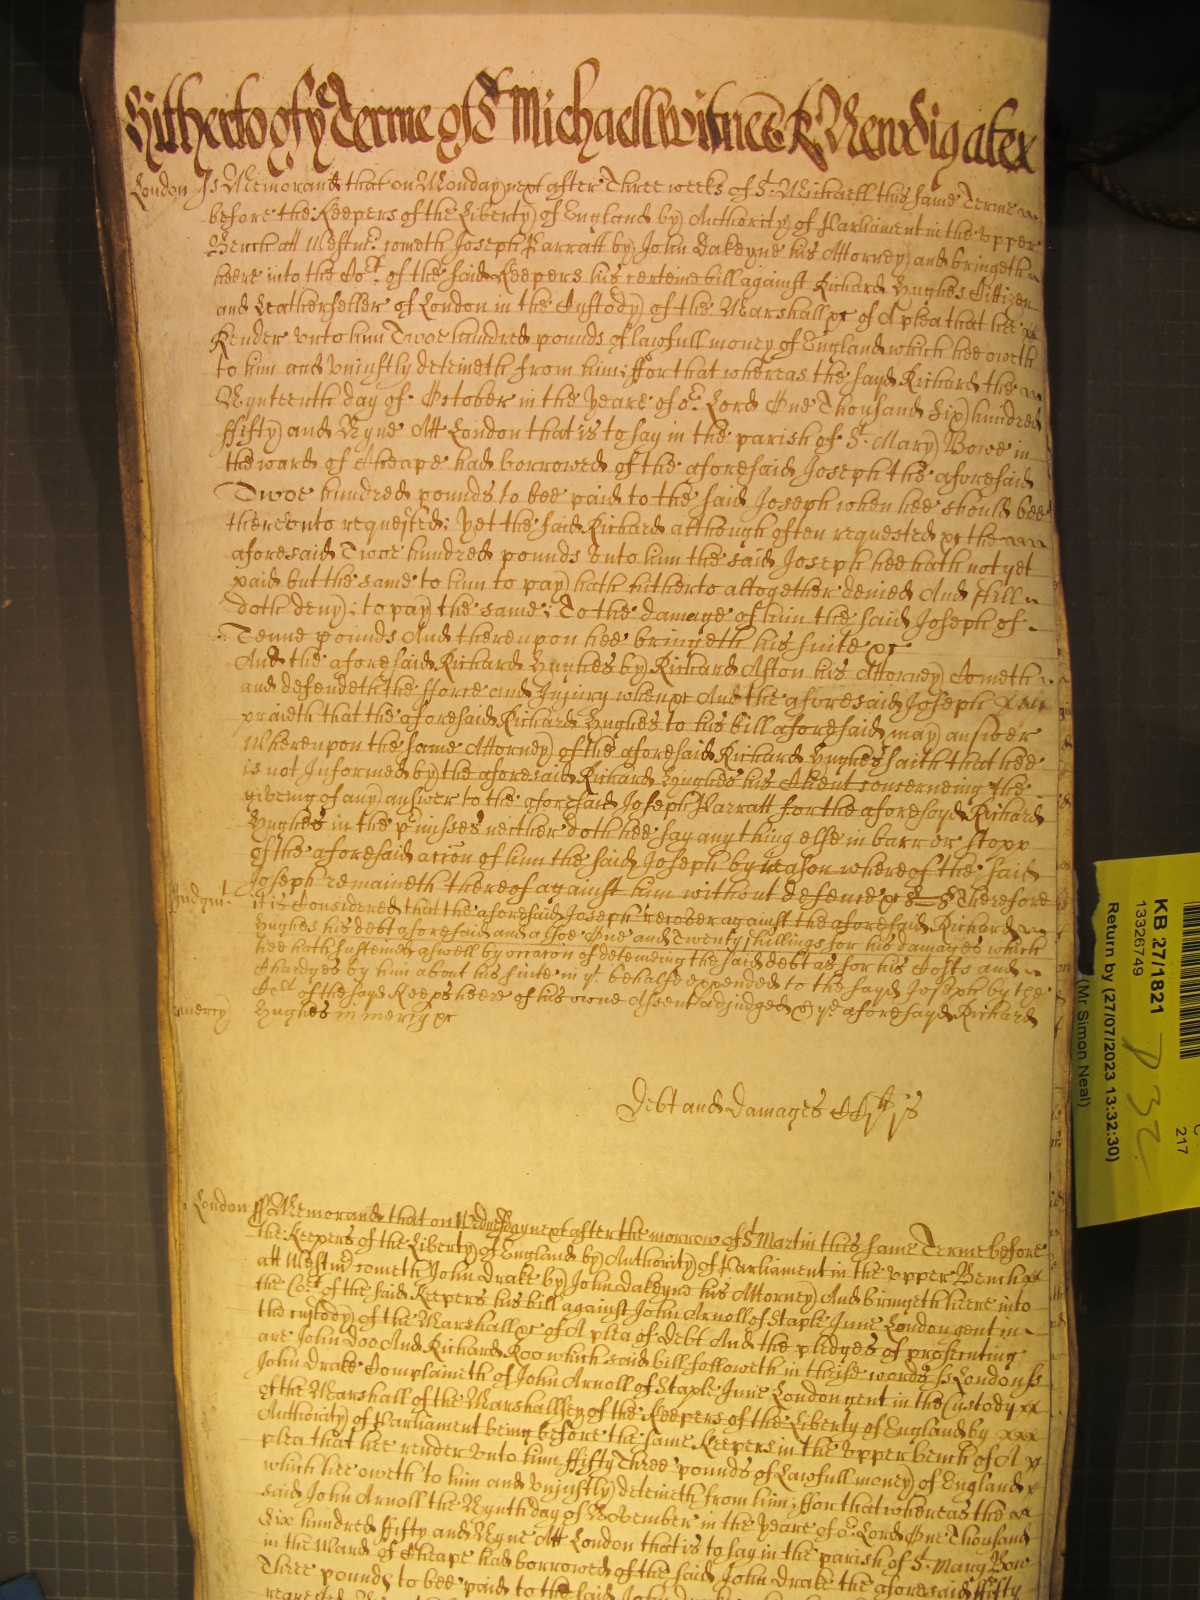 Hitherto of ye Terme of St Michaell witnes R: Newdigate xx
London ss Memorand that on Monday next after Three weeks of St: Michaell this same Terme
before the Keepers of the Liberty of England by Authority of Parliament in the upper
Bench att Westmr: cometh Joseph Parratt by John Dakeyne his Attorney and bringeth
heere into the Cort. of the said Keepers his certeine bill against Richard Hughes Cittizen
and Leatherseller of London in the Custody of the Marshall &c of A plea that hee
Render unto him Twoe hundred pounds of lawfull money of England which hee oweth
to him and uniustly deteineth from him; ffor that whereas the sayd Richard the
Nynteenth day of October in the yeare of or. Lord One Thousand Six hundred
ffifty and Nyne Att London that is to say in the parish of St. Mary Bowe in
the ward of Cheape had borrowed of the aforesaid Joseph the aforesaid
Twoe hundred pounds to bee paid to the said Joseph when hee should bee
thereunto requested; yet the said Richard although often requested &c the
aforesaid Twoe hundred pounds unto him the said Joseph hee hath not yet
paid but the same to him to pay hath hitherto altogether denied And still
doth deny; to pay the same; To the damage of him the said Joseph of
Tenne pounds And thereupon hee bringeth his suite &c
And the aforesaid Richard Hughes by Richard Aston his Attorney Cometh
and defendeth the fforce and Injury when &c And the aforesaid Joseph
praieth that the aforesaid Richard Hughes to his bill aforesaid may answer
Whereupon the same Attorney of the aforesaid Richard Hughes saith that hee
is not Informed by the aforesaid Richard Hughes his Client concerneing the
giveing of any answer to the aforesaid Joseph Parratt for the aforesayd Richard
Hughes in the p'misses neither doth hee say anything else in barr or stopp
of the aforesaid accon of him the said Joseph by reason whereof the said
Joseph remaineth thereof against him without defence &c Therefore
Judgmt. it is Considered that the aforesaid Joseph recover against the aforesaid Richard
Hughes his debt aforesaid and alsoe One and Twenty shillings for his damages which
hee hath susteined aswell by occasion of deteineing the said debt as for his Costs and
Chardges by him about his suite in yt. behalfe expended to the sayd Joseph by the
Cort of the sayd Keeps heere of his owne Assent adjudged & ye aforesayd Richard
in mercy Hughes in mercy &c
Debt and damages
London ss Memorand that on Wednesday next after the morrow of St Martin this same Terme before
the Keepers of the Liberty of England by Authority of Parliament in the upper Bench
att Westmr cometh John Drake by John Dakeyne his Attorney And bringeth heere into
the Cort. of the said Keepers his bill against John Arnoll of Staple Inne London gent in
the custody of the Marshall &c of A plea of debt And the pledges of prosecuting
are John Doo And Richard Roo which said bill followeth in theise words ss London ss
John Drake Complaineth of John Arnoll of Staple Inne London gent in the Custody
of the Marshall of the Marshallsey of the Keepers of the Liberty of England by
Authority of Parliament being before the same Keepers in the upper bench of A
plea that hee render unto him ffifty Three pounds of Lawfull money of England
which hee oweth to him and uniustly deteineth from him; ffor that whereas the
said John Arnoll the Nynth day of November in the yeare of or. Lord One Thousand
Six hundred ffifty and Nyne Att London that is to say in the parish of St. Mary Bow
in the Ward of Cheape had borrowed of the said John Drake the aforesaid ffifty
Three pounds to bee paid to the said John
KB 27/1821
13326749
Return by (27/07/2023 13:32:30)
(Mr Simon Neal)
217